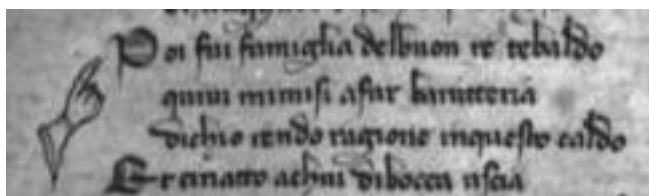 Poi fui famiglia delbuon re tebaldo
quiui mimisi afar baratteria
dichio rendo ragione inquesto caldo
Et ciriatto achui dibocca uscia